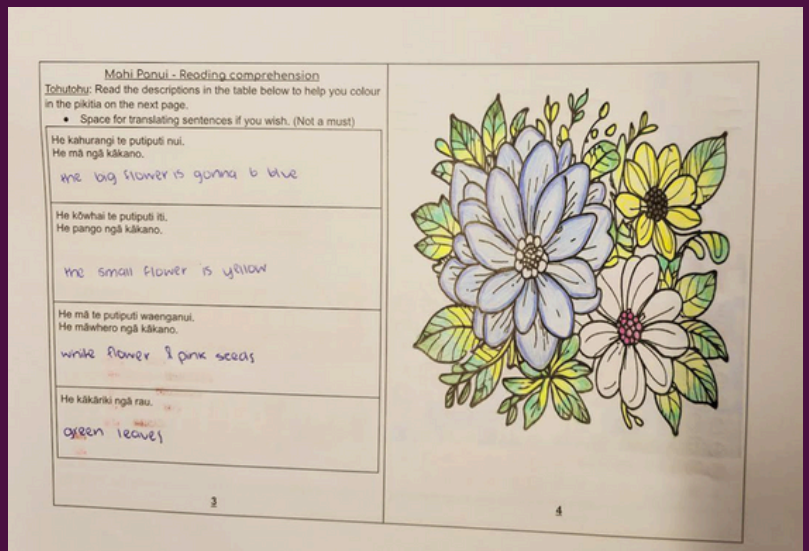 Mahi Panui - Reading comprehension
Tohutohu: Read the descriptions in the table below to help you colour
in the pikitia on the next page.
• Space for translating sentences if you wish. (Not a must)
He kahurangi te putiputi nui.
He mā ngā kākano.
the big flower is gonna b blue
He kōwhai te putiputi iti.
He pango ngā kākano.
the small flower is yellow
He mā te putiputi waenganui.
He māwhero ngā kākano.
white flower & pink seeds
He kākāriki ngā rau.
green leaves
3
4